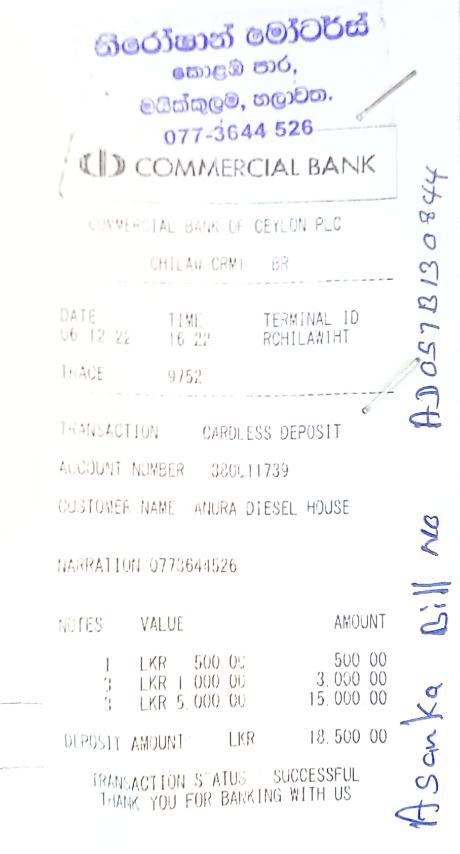 නිරෝෂාන් මෝටර්ස්
කොළඹ පාර,
මයික්කුලම, හලාවත.
077-3644 526
COMMERCIAL BANK
COMMERCIAL BANK OF CEYLON PLC
CHILAW CRM1 BR
DATE TIME TERMINAL ID
06 12 22 16 22 RCHILAW1HT
TRACE 9752
TRANSACTION CARDLESS DEPOSIT
ACCOUNT NUMBER 380011739
CUSTOMER NAME ANURA DIESEL HOUSE
NARRATION 0773644526
NOTES VALUE AMOUNT
1 LKR 500 00 500 00
3 LKR 1 000 00 3.000 00
3 LKR 5.000 00 15.000 00
DEPOSIT AMOUNT LKR 18.500 00
TRANSACTION STATUS : SUCCESSFUL
THANK YOU FOR BANKING WITH US
Asanka Bill no AD057B130844